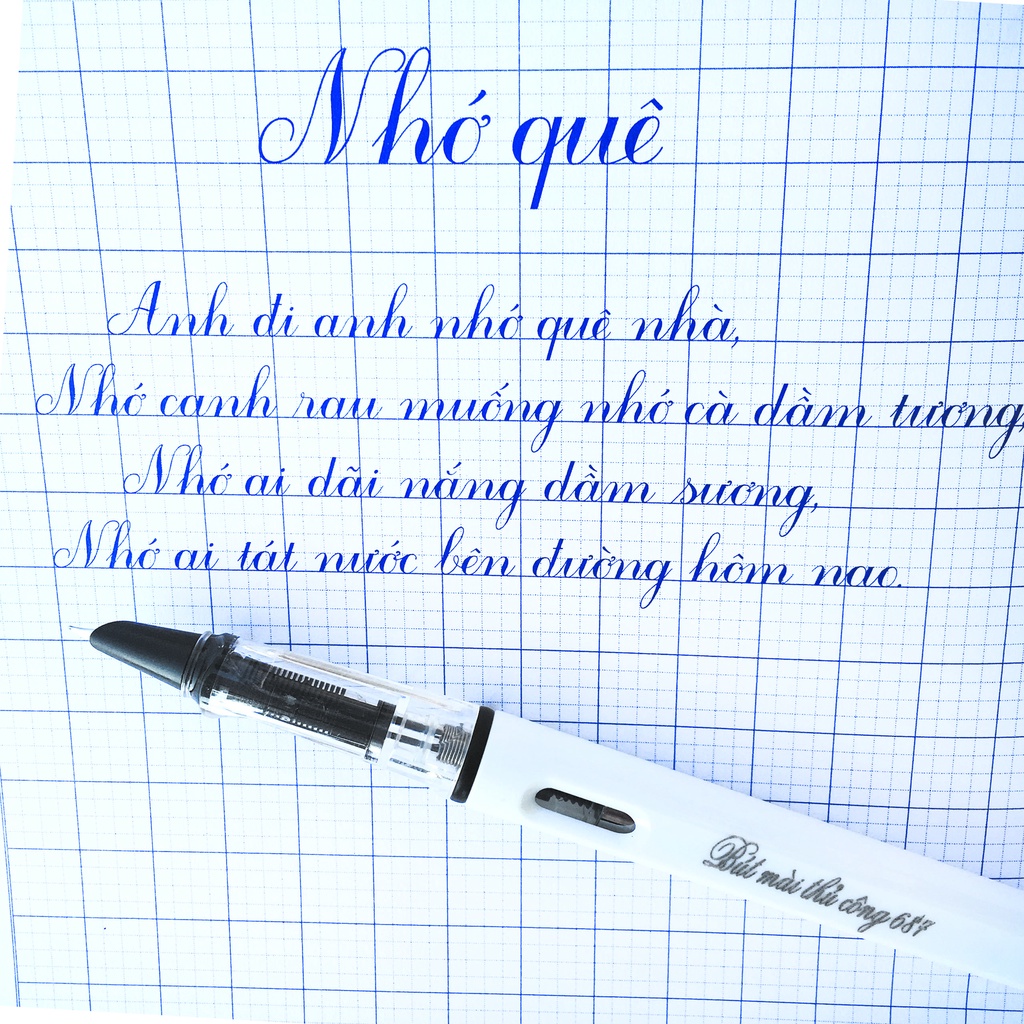 Nhớ quê
Anh đi anh nhớ quê nhà,
Nhớ canh rau muống nhớ cà dầm tương,
Nhớ ai dãi nắng dầm sương,
Nhớ ai tát nước bên đường hôm nao.
Bút mài thủ công 687